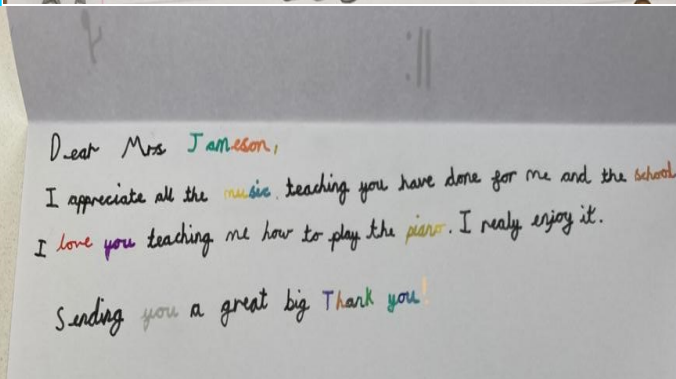 Dear Mrs Jameson,
I appreciate all the music teaching you have done for me and the school
I love you teaching me how to play the piano. I realy enjoy it.
Sending you a great big Thank you!